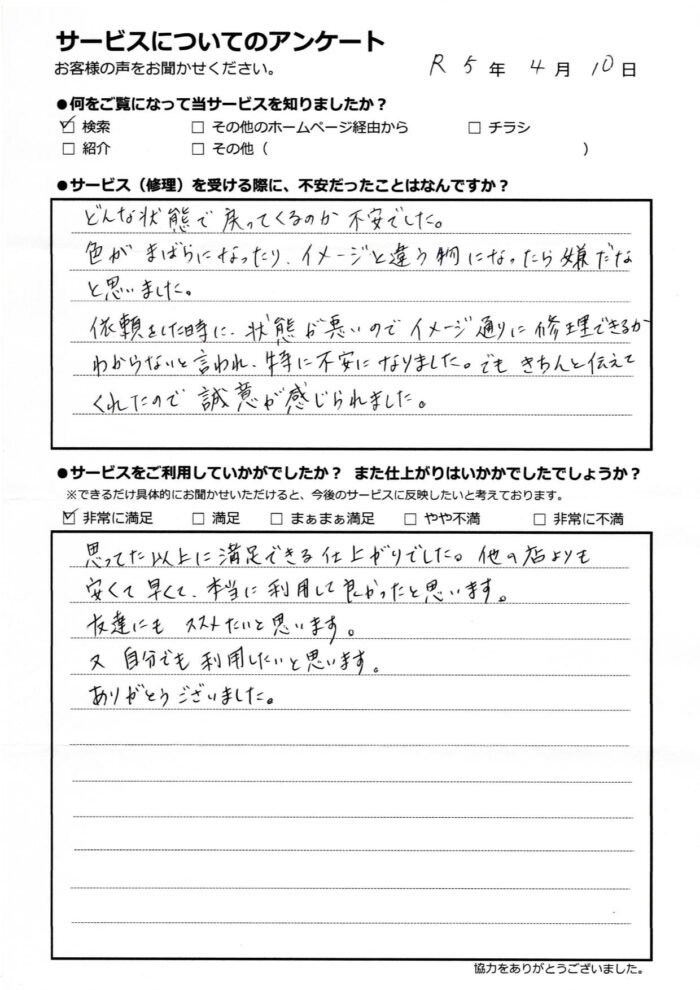 サービスについてのアンケート
お客様の声をお聞かせください。
R 5 年 4 月 10 日
●何をご覧になって当サービスを知りましたか？
☑ 検索 □ その他のホームページ経由から □ チラシ
□ 紹介 □ その他（ ）
●サービス（修理）を受ける際に、不安だったことはなんですか？
どんな状態で戻ってくるのか不安でした。
色がまばらになったり、イメージと違う物になったら嫌だな
と思いました。
依頼をした時に、状態が悪いのでイメージ通りに修理できるか
わからないと言われ、特に不安になりました。でもきちんと伝えて
くれたので誠意が感じられました。
●サービスをご利用していかがでしたか？ また仕上がりはいかかでしたでしょうか？
※できるだけ具体的にお聞かせいただけると、今後のサービスに反映したいと考えております。
☑ 非常に満足 □ 満足 □ まぁまぁ満足 □ やや不満 □ 非常に不満
思ってた以上に満足できる仕上がりでした。他の店よりも
安くて早くて、本当に利用して良かったと思います。
友達にもススメたいと思います。
又 自分でも利用したいと思います。
ありがとうございました。
協力をありがとうございました。